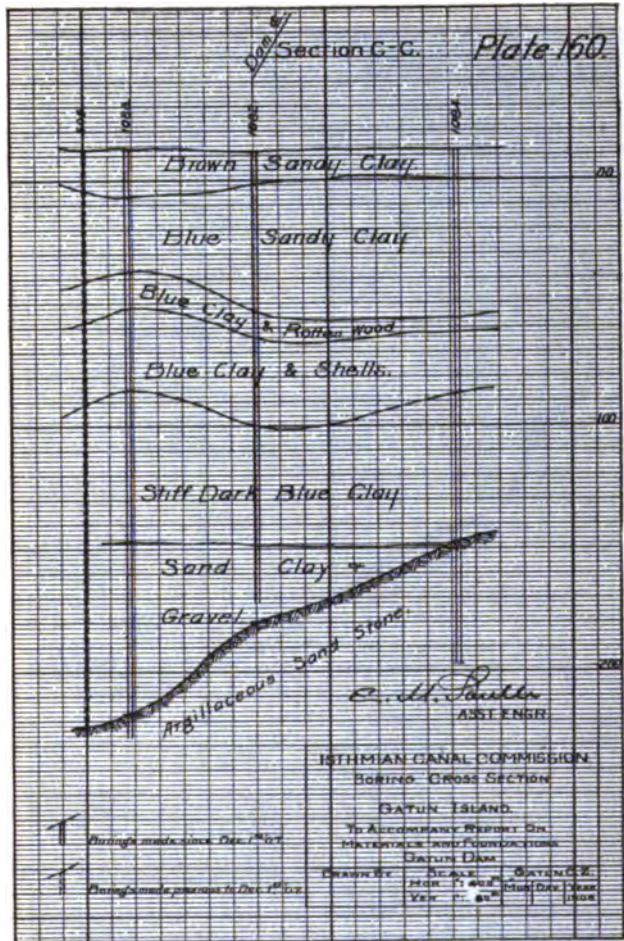 Section C-C.
Plate 160.
Brown Sandy Clay
00
Blue Sandy Clay
Blue Clay & Rotten Wood
Blue Clay & Shells.
100
Stiff Dark Blue Clay
Sand Clay +
Gravel
200
Argillaceous Sand Stone.
ASST ENGR
ISTHMIAN CANAL COMMISSION
BORING CROSS SECTION
GATUN ISLAND.
TO ACCOMPANY REPORT ON
MATERIALS AND FOUNDATIONS
GATUN DAM
DRAWN BY SCALE GATUN C.Z.
HOR MON DAY YEAR
VER 1908
Borings made since Dec 1st 07
Borings made previous to Dec 1st 07